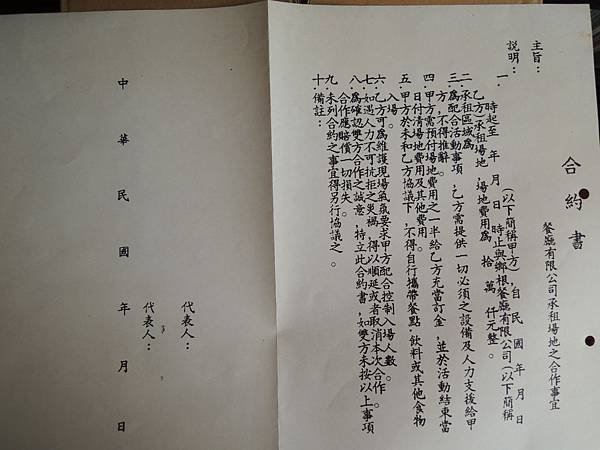 合約書
餐廳有限公司承租場地之合作事宜
主旨：
說明：
一.(以下簡稱甲方),自民國 年 月 日
時起至 年 月 日 時止與鄉根餐廳有限公司(以下簡稱
乙方)承租場地,場地費用為 拾 萬 仟元整。
二.承租區域為
三.為配合活動事項,乙方需提供一切必須之設備及人力支援給甲
方,不得推辭。
四.甲方需預付場地費用之一半給乙方充當訂金,並於活動結束當
日付清場地費用及其他費用。
五.甲方於未和乙方協議下,不得自行攜帶餐點.飲料或其他食物
入場。
六.乙方可為維護現場氣氛要求甲方配合控制入場人數。
七.如遇人力不可抗拒之災禍,得以順延或者取消本次合作。
八.為確認雙方合作之誠意,特立此合約書,如雙方未按以上事項
合作應賠償一切損失。
九.未列合約之事宜得另行協議之。
十.備註：
代表人：
代表人：
中華民國 年 月 日